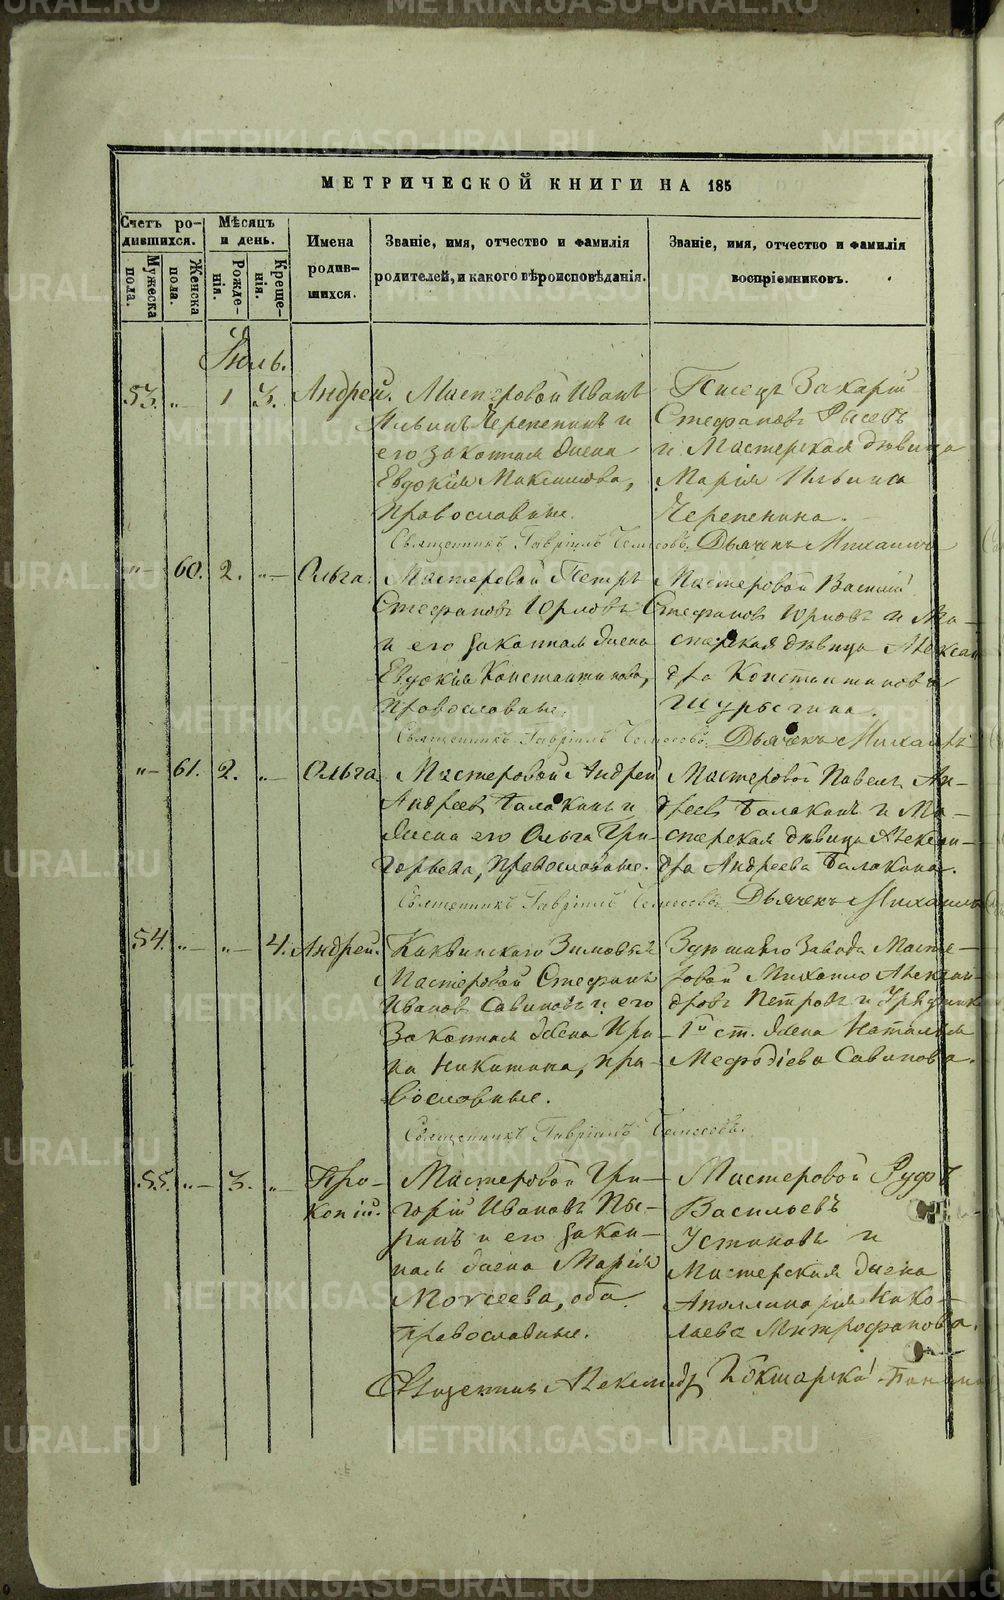 МЕТРИЧЕСКОЙ КНИГИ НА 185
Счетъ ро-
дившихся.
Мѣсяцъ
и день.
Имена
родив-
шихся.
Званіе, имя, отчество и фамилія
родителей, и какого вѣроисповѣданія.
Званіе, имя, отчество и фамилія
воспріемниковъ.
Мужеска
пола.
Женска
пола.
Рожде-
нія.
Креще-
нія.
Іюль.
53. „ 1 3. Андрей.
Мастеровой Иванъ
Ильинъ Черепенинъ и
его законная жена
Евдокія Максимова,
православные.
Писецъ Захарій
Стефановъ
и Мастерская дѣвица
Марія Ильина
Черепенина.
Священникъ Гавріилъ Дьячекъ Михаилъ
„ 60. 2. „ Ольга.
Мастеровой Петръ
Стефановъ Юрловъ
и его законная жена
Евдокія Константинова,
православные.
Мастеровой Василій
Стефановъ Юрловъ и Ма-
стерская дѣвица Алексан
дра Константинова
Шурыгина.
Священникъ Гавріилъ Дьячекъ Михаилъ
„ 61. 2. „ Ольга
Мастеровой Андрей
Андреевъ Балакинъ и
жена его Ольга Гри-
горьева, православные.
Мастеровой Павелъ Ан-
дреевъ Балакинъ и Ма-
стерская дѣвица Алексан-
дра Андреева Балакина.
Священникъ Гавріилъ Дьячекъ Михаилъ
54. „ „ 4. Андрей.
Каквинскаго Зимовья
Мастеровой Стефанъ
Ивановъ Савиновъ и его
законная жена Ири-
на Никитина, пра-
вославные.
завода Масте-
ровой Михаилъ Алексан-
дровъ Петровъ и Урядника
1й ст. жена Наталья
Мефодіева Савинова.
Священникъ Гавріилъ
55. „ 3. „ Про-
копій.
Мастеровой Гри-
горій Ивановъ Пы-
ринъ и его закон-
ная жена Марія
Моѵсеева, оба
православные.
Мастеровой Руфъ
Васильевъ
Устиновъ и
Мастерская жена
Аполлинарія Нико-
лаева Митрофанова.
Священник Александр
METRIKI.GASO-URAL.RU